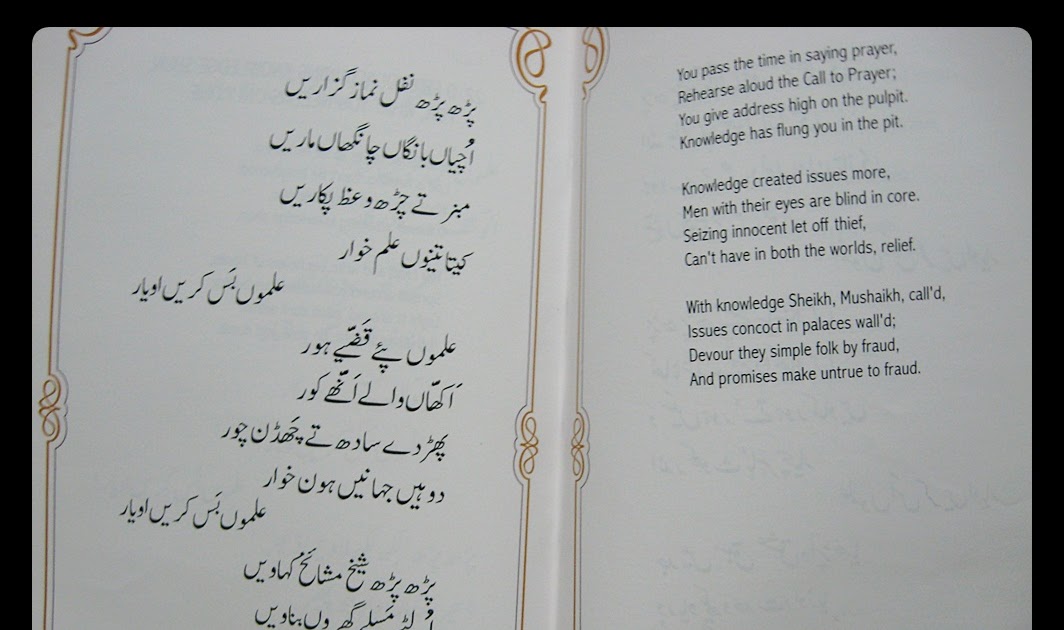 پڑھ پڑھ نفل نماز گزاریں
اُچیاں بانگاں چانگھاں ماریں
مبنر تے چڑھ وعظ پکاریں
کیتا تینوں علم خوار
علموں بَس کریں اویار
علموں پئے قَضّیے ہور
اَکھّاں والے اَنّھے کور
پھڑدے سادھ تے چَھڈن چور
دوہیں جہانیں ہون خوار
علموں بَس کریں اویار
پڑھ پڑھ شیخ مشائخ کہاویں
اُلٹے مَسلے گھروں بناویں
You pass the time in saying prayer,
Rehearse aloud the Call to Prayer;
You give address high on the pulpit.
Knowledge has flung you in the pit.
Knowledge created issues more,
Men with their eyes are blind in core.
Seizing innocent let off thief,
Can't have in both the worlds, relief.
With knowledge Sheikh, Mushaikh, call'd,
Issues concoct in palaces wall'd;
Devour they simple folk by fraud,
And promises make untrue to fraud.